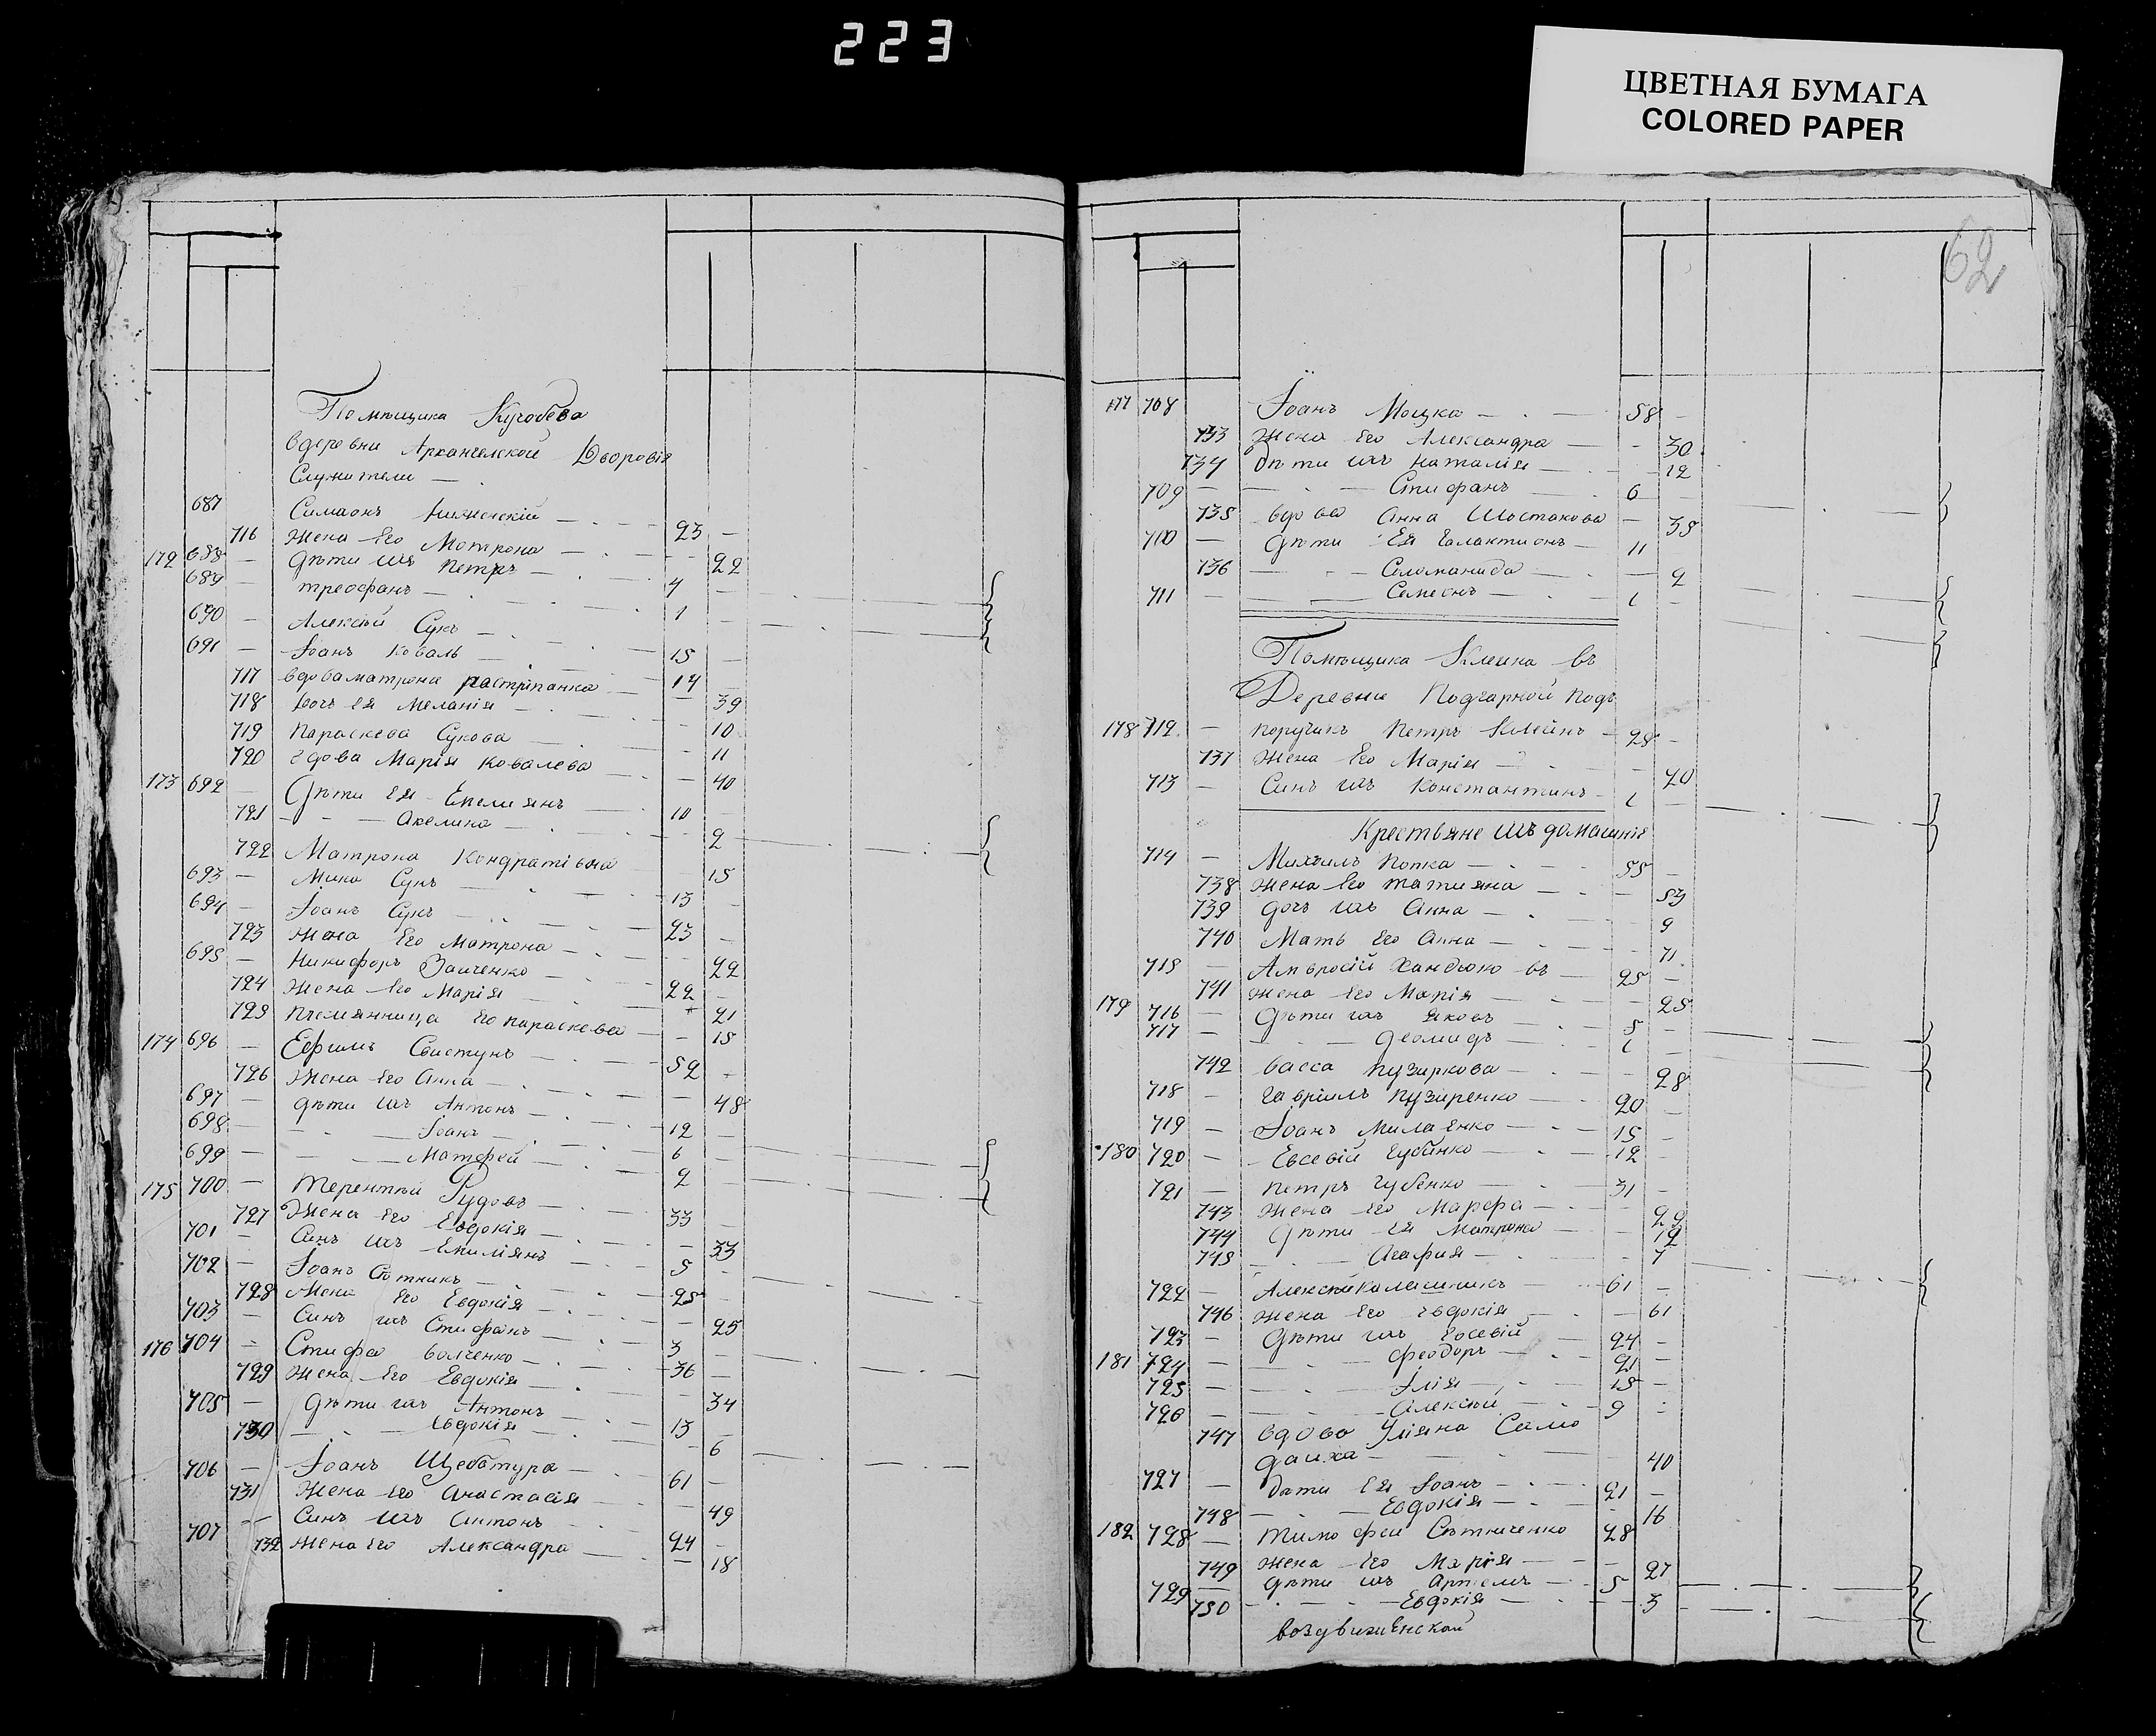 223
ЦВЕТНАЯ БУМАГА
COLORED PAPER
62
Помѣщика
вдеревни Архангелской Дворовія
Служители —
687 Симаонъ — 23
716 Жена Его Мотрона — 22
172 688 — дѣти ихъ Петръ — 4
689 — треофанъ — 1
690 — Алексѣй Сукъ — 15
691 — Іоанъ Коваль — 14
717 вдова матрона — 39
718 дочь ея Меланія — 10
719 Параскева Сукова — 11
720 вдова Марія Ковалева — 40
173 692 — Дѣти Ея Емелиянъ — 10
721 — Акелина — 2
722 Матрона Кондратівна 15
693 — Мина Сукъ — 13
694 — Іоанъ Сукъ — 23
723 Жена Его Матрона — 22
695 — Никифоръ Заиченко — 22
724 Жена Его Марія — 21
725 племянница Его параскева — 15
174 696 — Ефимъ Свистунъ — 52
726 Жена Его Анна — 48
697 — дѣти ихъ Антонъ — 12
698 — Іоанъ — 6
699 — Матфей — 2
175 700 — Терентій Рудовъ — 33
727 Жена Его Евдокія — 33
701 — Синъ ихъ Емиліянъ — 5
702 — Іоанъ Сотникъ — 25
728 Жена Его Евдокія — 25
703 — Синъ ихъ Стифанъ — 3
176 704 — Стифа волченко — 36
729 Жена Его Евдокія — 34
705 — дѣти ихъ Антонъ — 13
730 — Евдокія — 6
706 — Іоанъ Щебатура — 61
731 Жена Его Анастасія — 49
707 — Синъ ихъ Антонъ — 24
732 Жена Его Александра — 18
177 708 Іоанъ Моцка — 58
733 Жена Его Александра — 30
734 дѣти ихъ Наталія — 12
709 — Стифанъ — 6
735 вдова Анна Шостакова — 38
710 — дѣти Ея Галактионъ — 11
736 — Соломанида — 2
711 — Семеонъ — 1
Помѣщика Клеина въ
Деревни Подгарной Подъ
178 712 — поручикъ Петръ Клейнъ — 28
737 Жена Его Марія — 20
713 — Синъ ихъ Константинъ — 1
Крестьяне ихъ домашніе
714 — Михаилъ Попка — 55
738 Жена Его татияна — 53
739 дочъ ихъ Анна — 9
740 Мать Его Анна — 71
715 — Амвросій Хандюковъ — 25
741 Жена Его Марія — 25
179 716 — Дѣти ихъ Яковъ — 5
717 — Деомидъ — 1
742 Васса пузиркова — 28
718 — Гавріилъ Пузиренко — 20
719 — Іоанъ Милаенко — 15
180 720 — Евсевій Губенко — 12
721 — Петръ Губенко — 31
743 Жена Его Марфа — 29
744 Дѣти Ея Матрона — 12
745 — Агафия — 7
722 — Алексѣй Калашникъ — 61
746 Жена Его Евдокія — 61
723 — Дѣти ихъ Евсевій — 24
181 724 — Феодоръ — 21
725 — Ілія — 15
726 — Алексѣй — 9
747 вдова Уліяна Само
даиха — 40
727 — дѣти Ея Іоанъ — 21
748 — Евдокія — 16
182 728 — Тимофеи Сѣтниченко 28
749 Жена Его Марія — 27
729 — Дѣти ихъ Артемъ — 5
750 — Евдокія — 3
воздвиженской